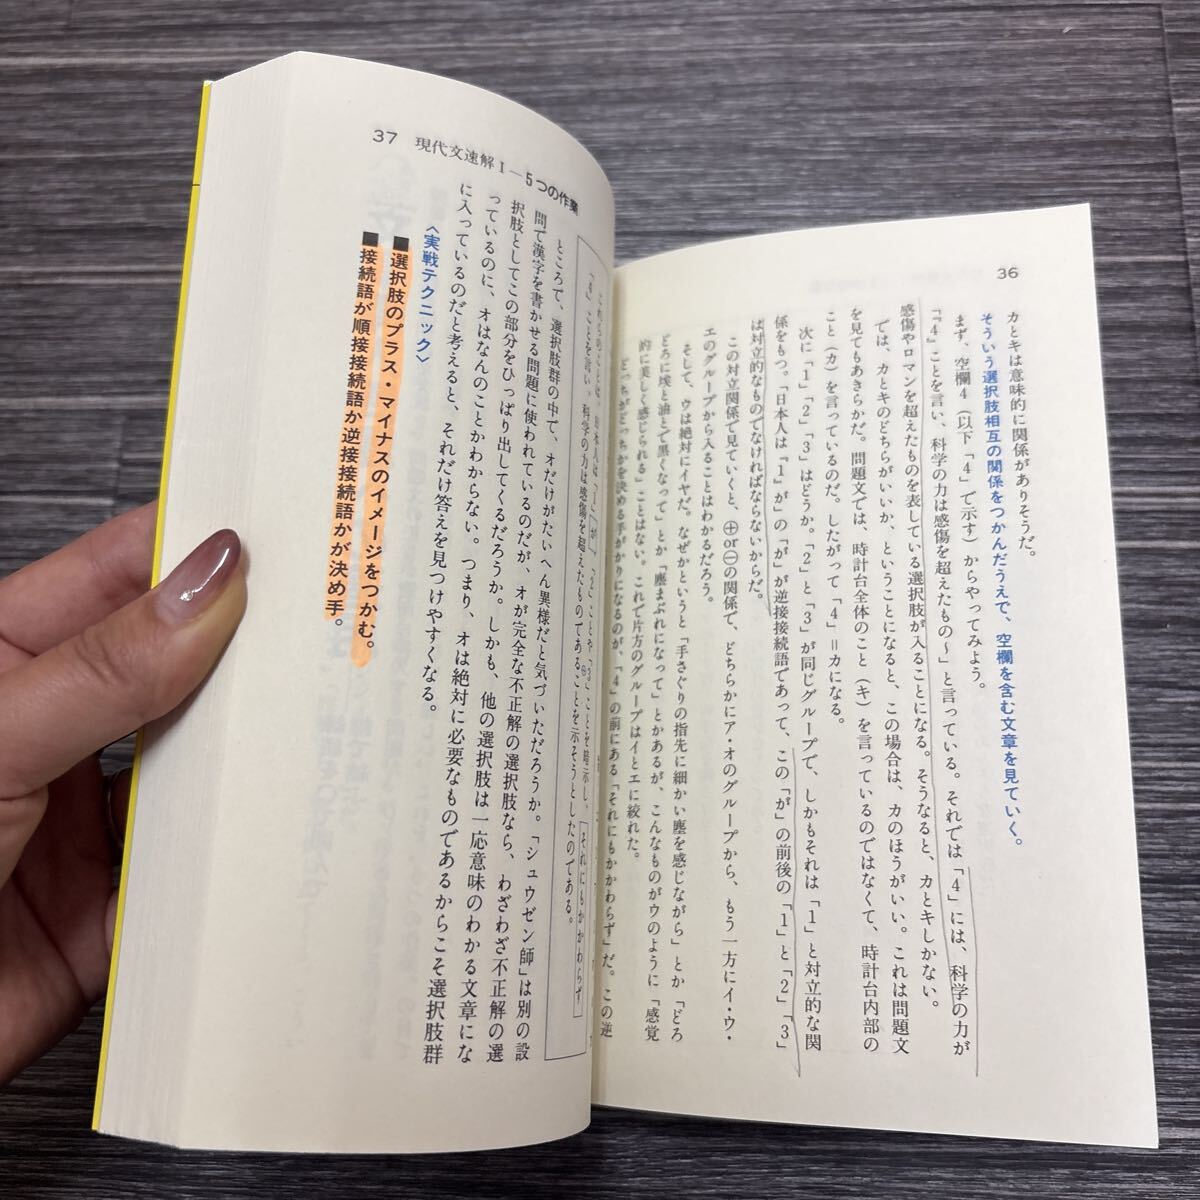 36
カとキは意味的に関係がありそうだ。
そういう選択肢相互の関係をつかんだうえで、空欄を含む文章を見ていく。
まず、空欄4(以下「4」で示す)からやってみよう。
「『4』ことを言い、科学の力は感傷を超えたもの〜」と言っている。それでは「4」には、科学の力が
感傷やロマンを超えたものを表している選択肢が入ることになる。そうなると、カとキしかない。
では、カとキのどちらがいいか、ということになると、この場合は、カのほうがいい。これは問題文
を見てもあきらかだ。問題文では、時計台全体のこと(キ)を言っているのではなくて、時計台内部の
こと(カ)を言っているのだ。したがって「4」=カになる。
次に「1」「2」「3」はどうか。「2」と「3」が同じグループで、しかもそれは「1」と対立的な関
係をもつ。「日本人は『1』が」の「が」が逆接接続語であって、この「が」の前後の「1」と「2」「3」
は対立的なものでなければならないからだ。
この対立関係で見ていくと、⊕or⊖の関係で、どちらかにア・オのグループから、もう一方にイ・ウ・
エのグループから入ることはわかるだろう。
そして、ウは絶対にイヤだ。なぜかというと「手さぐりの指先に細かい塵を感じながら」とか「どろ
どろに埃と油とで黒くなって」とか「塵まぶれになって」とかあるが、こんなものがウのように「感覚
的に美しく感じられる」ことはない。これで片方のグループはイとエに絞れた。
どっちがどっちかを決める手がかりになるのが、「4」の前にある「それにもかかわらず」だ。この逆
37 現代文速解Ⅰ—5つの作業
「4」ことを言い、科学の力は感傷を超えたものであることを示そうとしたのである。
ところで、選択肢群の中で、オだけがたいへん異様だと気づいただろうか。「シュウゼン師」は別の設
問で漢字を書かせる問題に使われているのだが、オが完全な不正解の選択肢なら、わざわざ不正解の選
択肢としてこの部分をひっぱり出してくるだろうか。しかも、他の選択肢は一応意味のわかる文章にな
っているのに、オはなんのことかわからない。つまり、オは絶対に必要なものであるからこそ選択肢群
に入っているのだと考えると、それだけ答えを見つけやすくなる。
〈実戦テクニック〉
■選択肢のプラス・マイナスのイメージをつかむ。
■接続語が順接接続語か逆接接続語かが決め手。